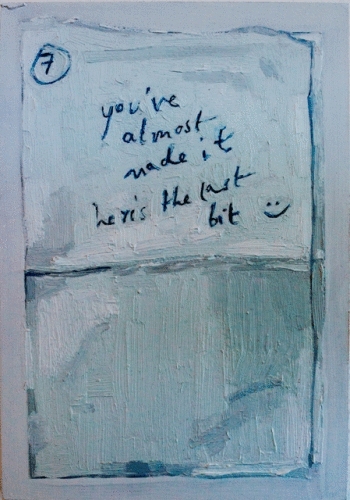 7
you've
almost
made it
here's the last
bit :)